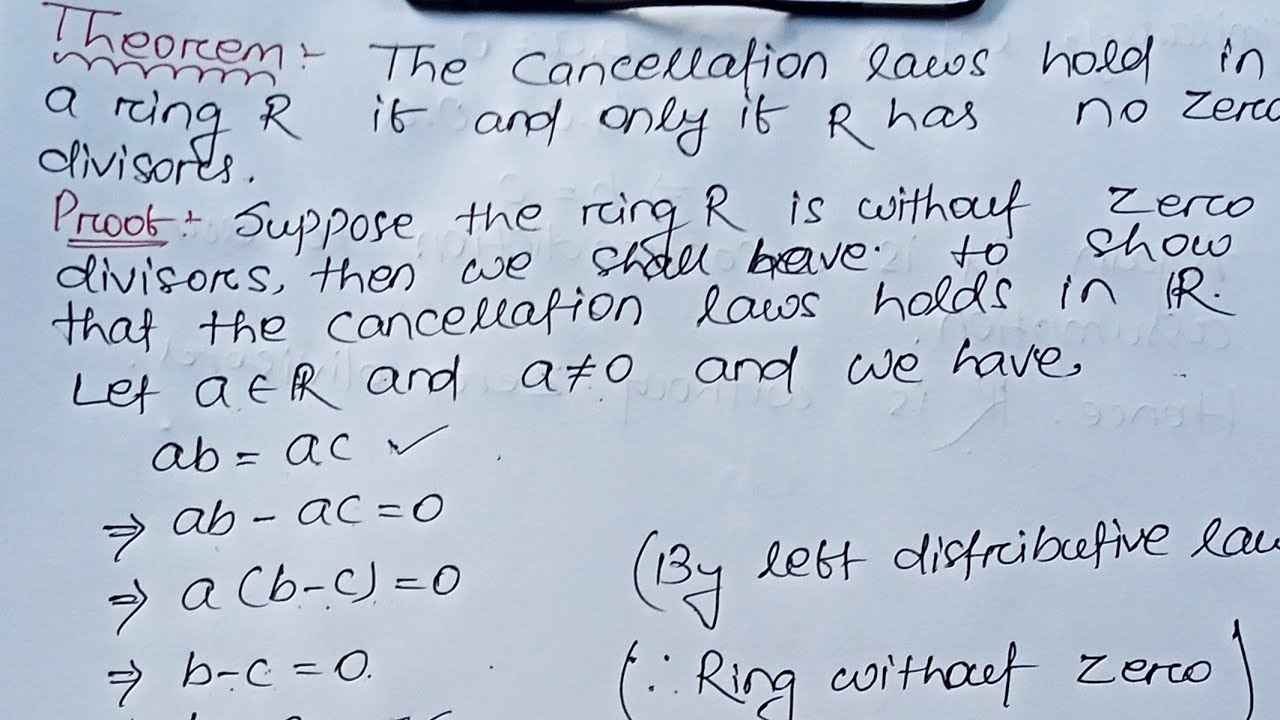 Theorem:- The Cancellation laws hold in
a ring R if and only if R has no zero
divisors.
Proof:- Suppose the ring R is without zero
divisors, then we shall have to show
that the cancellation laws holds in R.
Let a ∈ R and a ≠ 0 and we have,
ab = ac ✓
⇒ ab - ac = 0
⇒ a (b - c) = 0 (By left distributive law
⇒ b - c = 0. (∵ Ring without zero)